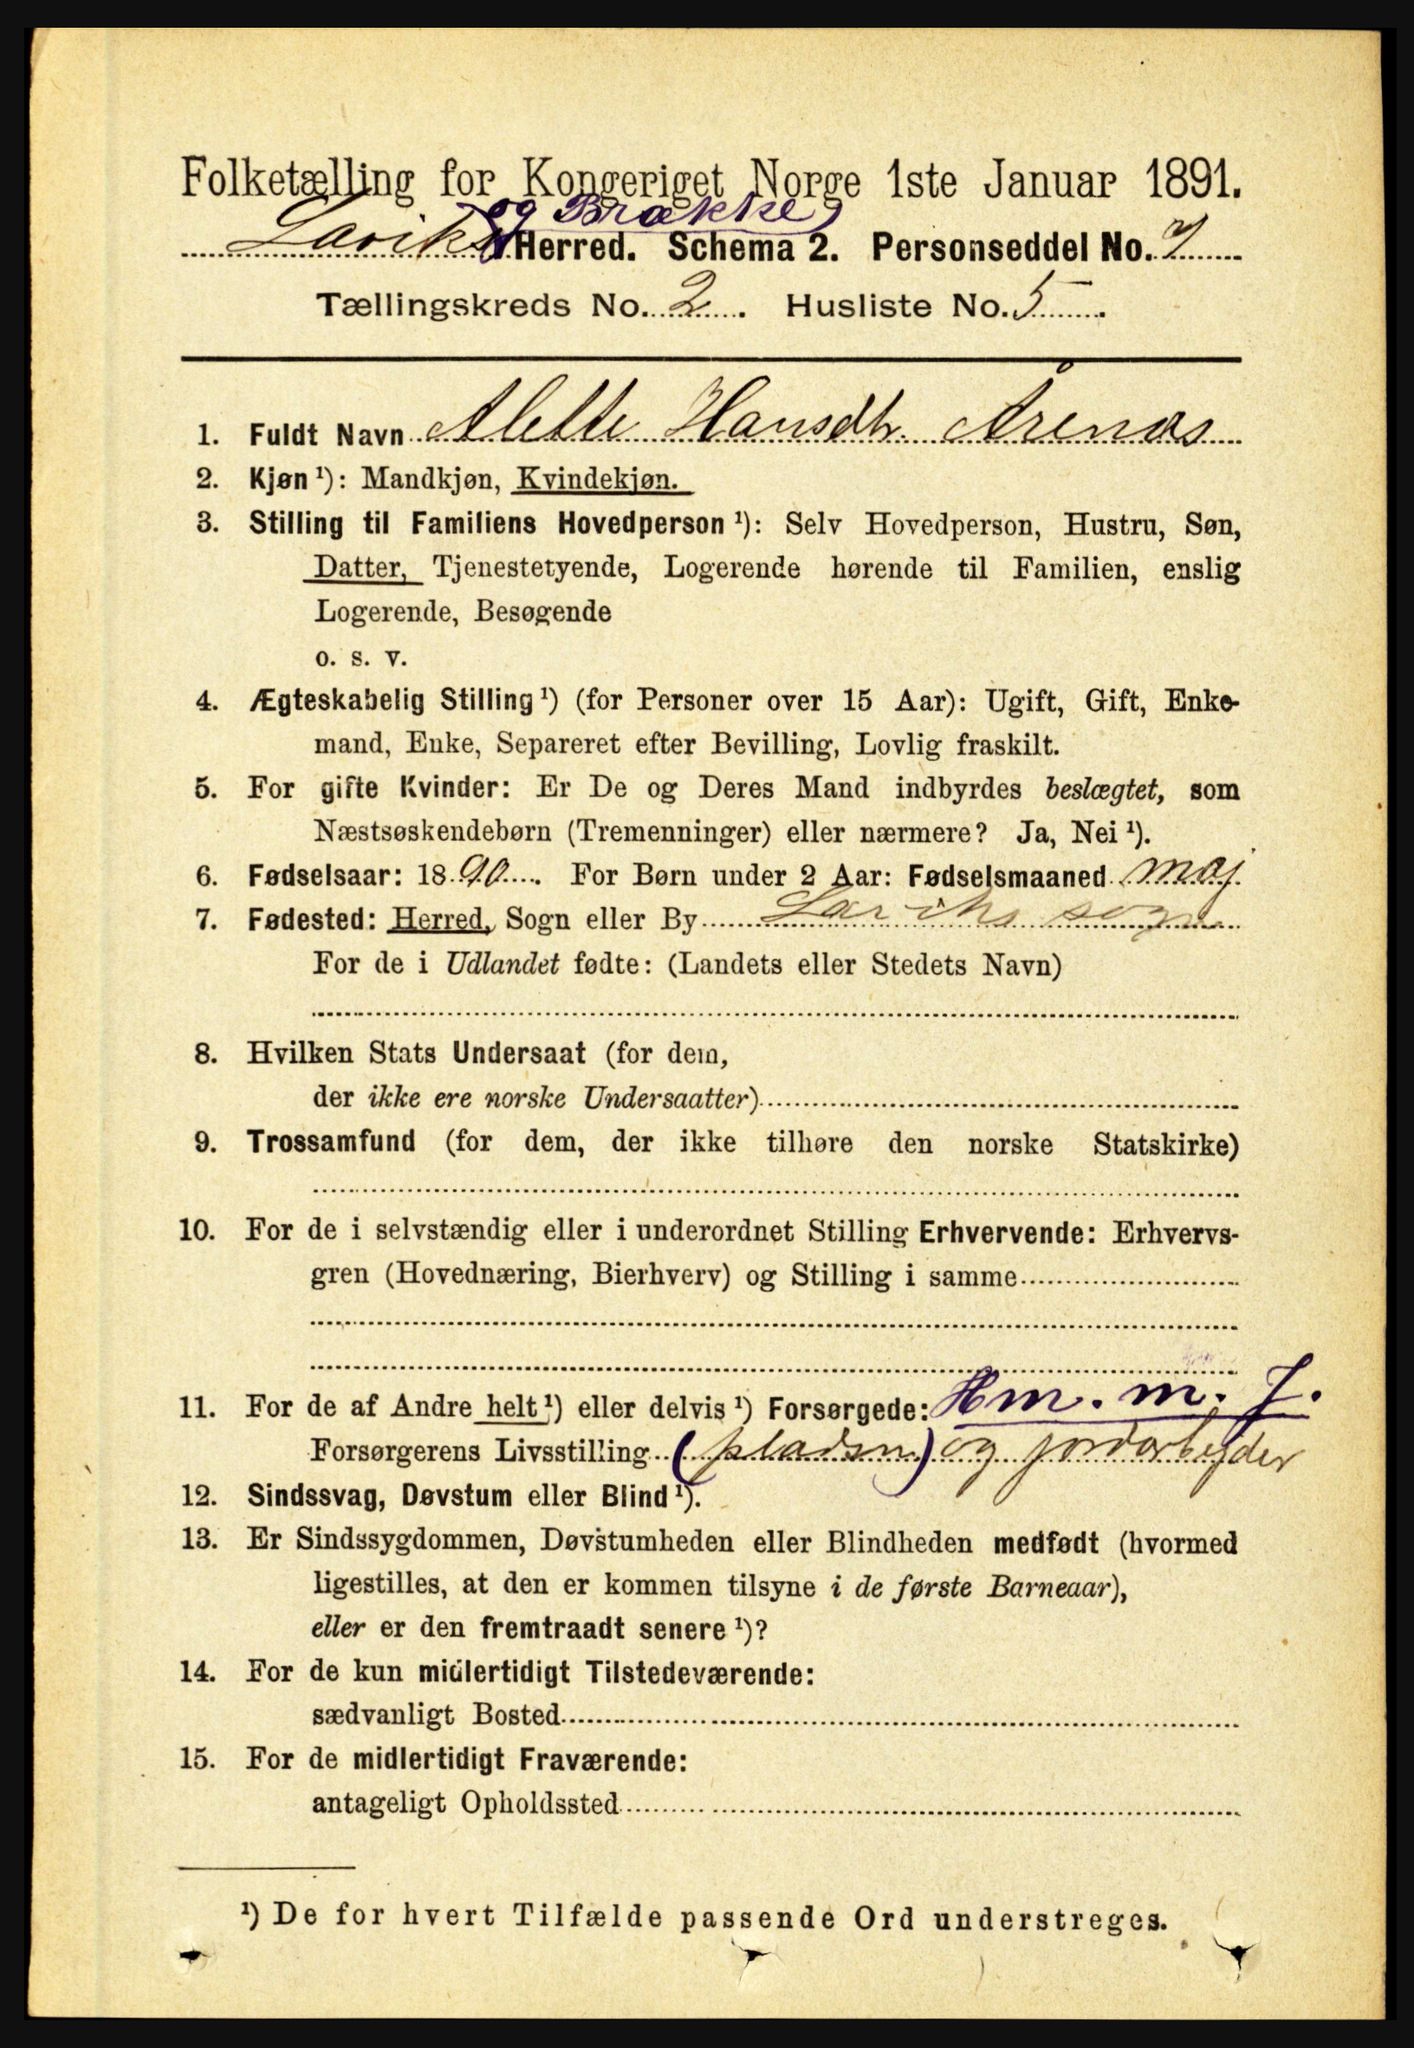 Folketælling for Kongeriget Norge 1ste Januar 1891.
og Brække
Laviks Herred. Schema 2. Personseddel No. 7
Tællingskreds No. 2. Husliste No. 5.
1. Fuldt Navn Alette Hansdtr. Årenæs
2. Kjøn ¹): Mandkjøn, Kvindekjøn.
3. Stilling til Familiens Hovedperson ¹): Selv Hovedperson, Hustru, Søn,
Datter, Tjenestetyende, Logerende hørende til Familien, enslig
Logerende, Besøgende
o. s. v.
4. Ægteskabelig Stilling ¹) (for Personer over 15 Aar): Ugift, Gift, Enke-
mand, Enke, Separeret efter Bevilling, Lovlig fraskilt.
5. For gifte Kvinder: Er De og Deres Mand indbyrdes beslægtet, som
Næstsøskendebørn (Tremenninger) eller nærmere? Ja, Nei ¹).
6. Fødselsaar: 1890. For Børn under 2 Aar: Fødselsmaaned maj
7. Fødested: Herred, Sogn eller By Laviks sogn
For de i Udlandet fødte: (Landets eller Stedets Navn)
8. Hvilken Stats Undersaat (for dem,
der ikke ere norske Undersaatter)
9. Trossamfund (for dem, der ikke tilhøre den norske Statskirke)
10. For de i selvstændig eller i underordnet Stilling Erhvervende: Erhvervs-
gren (Hovednæring, Bierhverv) og Stilling i samme
11. For de af Andre helt ¹) eller delvis ¹) Forsørgede: Hm. m. J.
Forsørgerens Livsstilling (pladsm) og jordarbejder
12. Sindssvag, Døvstum eller Blind ¹).
13. Er Sindssygdommen, Døvstumheden eller Blindheden medfødt (hvormed
ligestilles, at den er kommen tilsyne i de første Barneaar),
eller er den fremtraadt senere ¹)?
14. For de kun midlertidigt Tilstedeværende:
sædvanligt Bosted
15. For de midlertidigt Fraværende:
antageligt Opholdssted
¹) De for hvert Tilfælde passende Ord understreges.